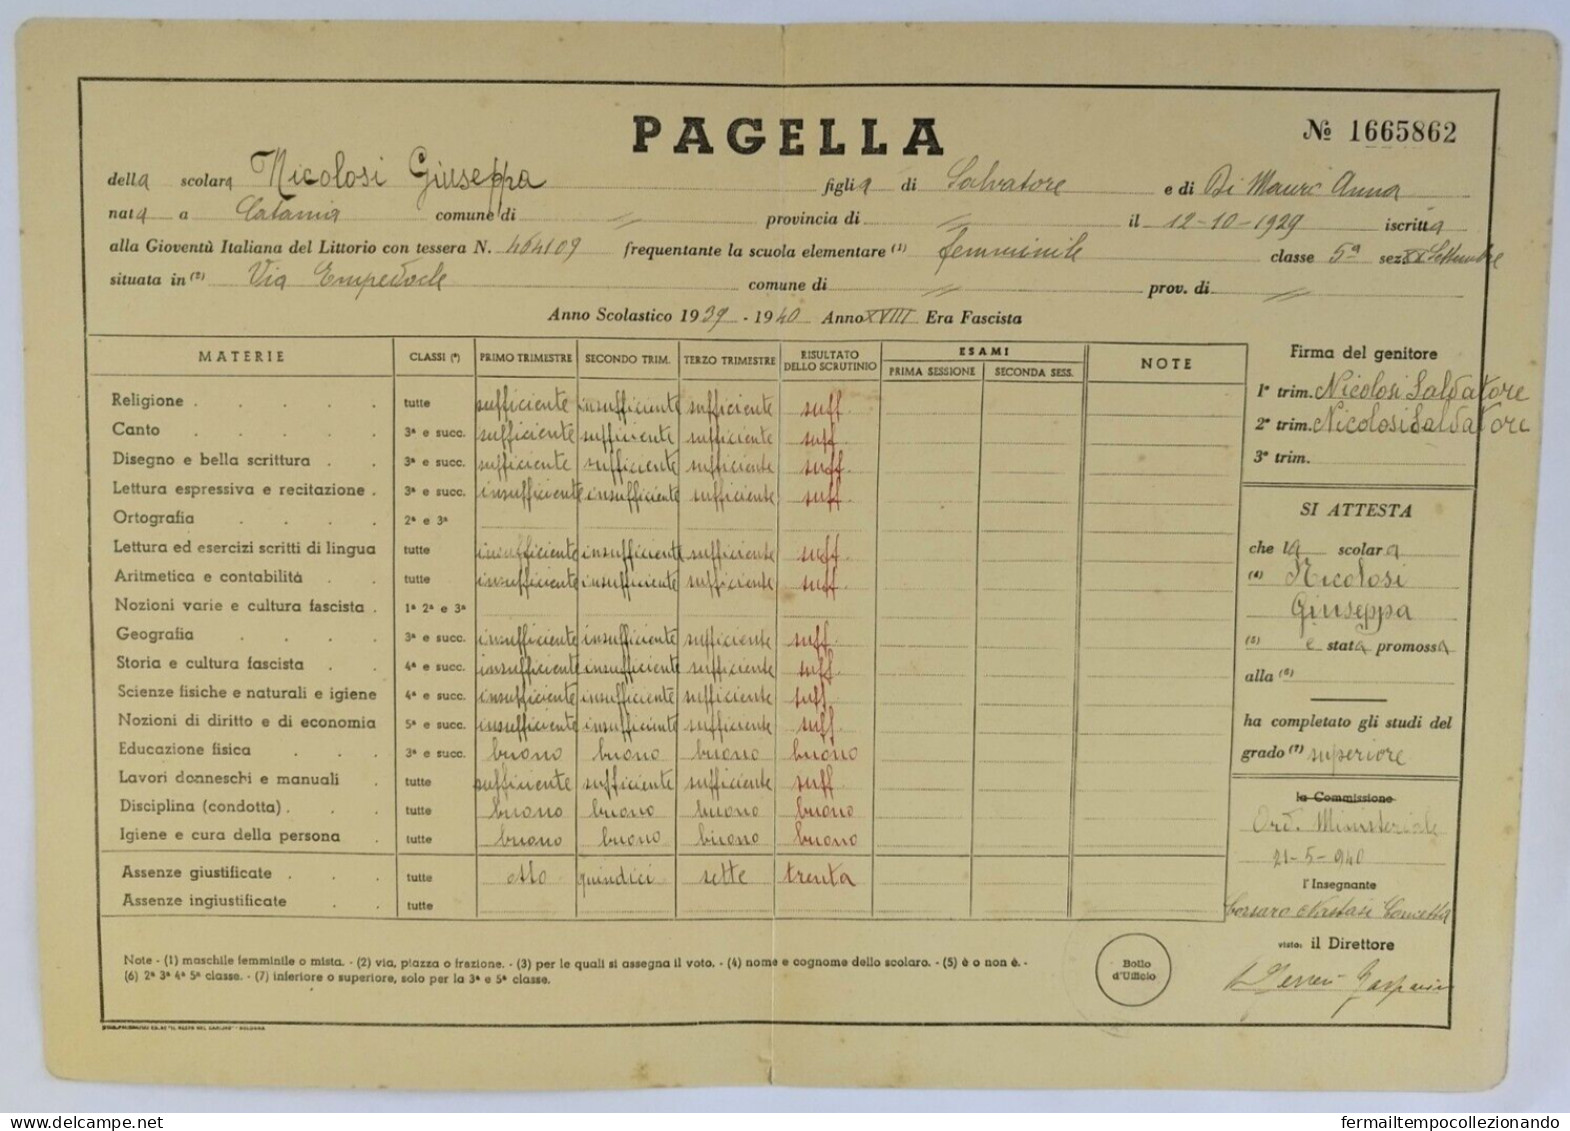 PAGELLA
№ 1665862
della scolara Nicolosi Giuseppa figlia di Salvatore e di Di Mauro Anna
nata a Catania comune di " provincia di " il 12-10-1929 iscritta
alla Gioventù Italiana del Littorio con tessera N. 464109 frequentante la scuola elementare (1) femminile classe 5ª sez. XX Settembre
situata in (2) Via Empedocle comune di " prov. di "
Anno Scolastico 1939 - 1940 Anno XVIII Era Fascista
MATERIE CLASSI (*) PRIMO TRIMESTRE SECONDO TRIM. TERZO TRIMESTRE RISULTATO DELLO SCRUTINIO ESAMI PRIMA SESSIONE SECONDA SESS. NOTE
Religione tutte sufficiente insufficiente sufficiente suff.
Canto 3ª e succ. sufficiente sufficiente sufficiente suff
Disegno e bella scrittura 3ª e succ. sufficiente sufficiente sufficiente suff
Lettura espressiva e recitazione 3ª e succ. insufficiente insufficiente sufficiente suff
Ortografia 2ª e 3ª
Lettura ed esercizi scritti di lingua tutte insufficiente insufficiente sufficiente suff.
Aritmetica e contabilità tutte insufficiente insufficiente sufficiente suff.
Nozioni varie e cultura fascista 1ª 2ª e 3ª
Geografia 3ª e succ. insufficiente insufficiente sufficiente suff.
Storia e cultura fascista 4ª e succ. insufficiente insufficiente sufficiente suff
Scienze fisiche e naturali e igiene 4ª e succ. insufficiente insufficiente sufficiente suff
Nozioni di diritto e di economia 5ª e succ. insufficiente insufficiente sufficiente suff.
Educazione fisica 3ª e succ. buono buono buono buono
Lavori donneschi e manuali tutte sufficiente sufficiente sufficiente suff
Disciplina (condotta) tutte buono buono buono buono
Igiene e cura della persona tutte buono buono buono buono
Assenze giustificate tutte otto quindici sette trenta
Assenze ingiustificate tutte
Firma del genitore
1º trim. Nicolosi Salvatore
2º trim. Nicolosi Salvatore
3º trim.
SI ATTESTA
che la scolara
(4) Nicolosi
Giuseppa
(5) è stata promossa
alla (6)
ha completato gli studi del
grado (7) superiore
la Commissione
Ord. Ministeriale
21-5-940
l'Insegnante
Corsaro Nastasi Concetta
visto: il Direttore
Note - (1) maschile femminile o mista. - (2) via, piazza o frazione. - (3) per le quali si assegna il voto. - (4) nome e cognome dello scolaro. - (5) è o non è. -
(6) 2ª 3ª 4ª 5ª classe. - (7) inferiore o superiore, solo per la 3ª e 5ª classe.
Bollo
d'Ufficio
www.delcampe.net
fermailtempocollezionando